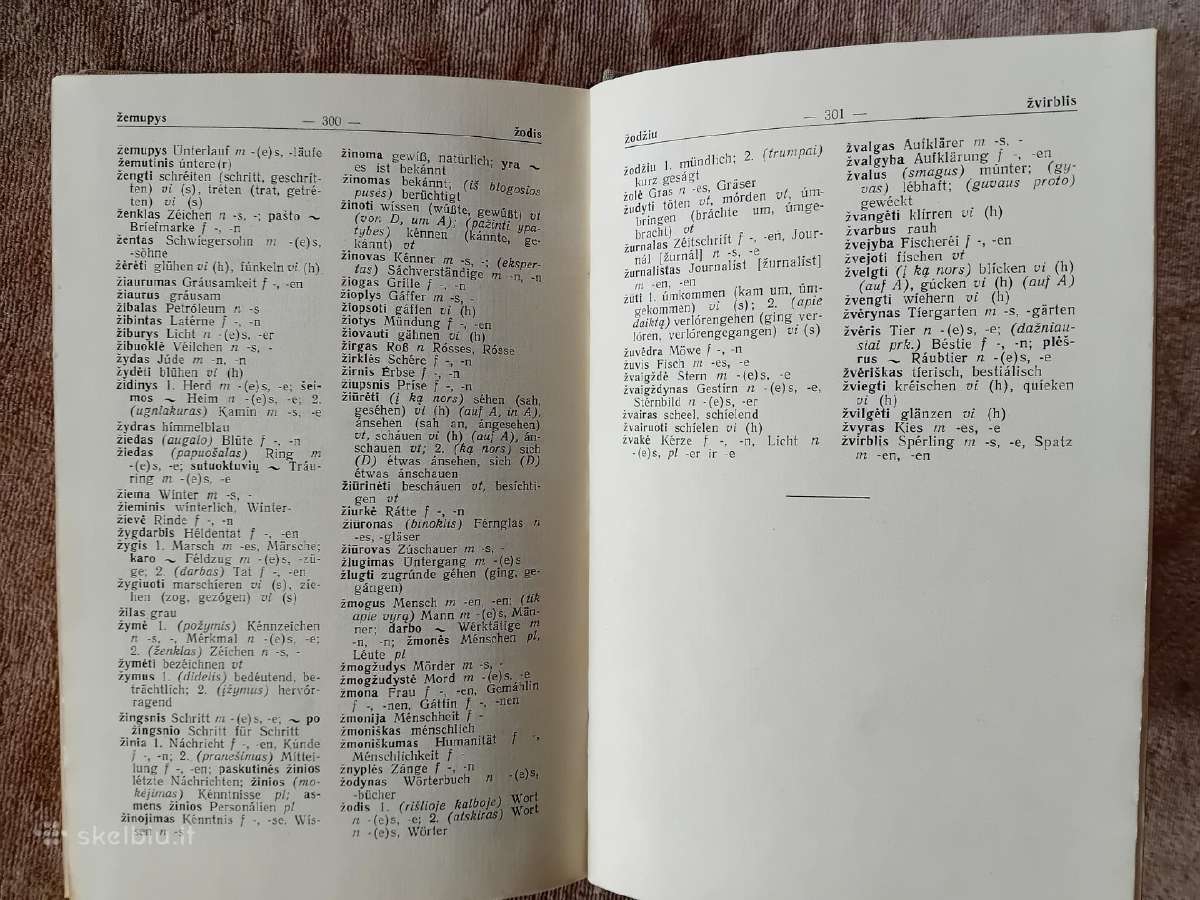 žemupys
— 300 —
žodis
žemupys Unterlauf m -(e)s, -läufe
žemutinis úntere(r)
žengti schréiten (schritt, geschrit-
ten) vi (s), tréten (trat, getré-
ten) vi (s)
ženklas Zéichen n -s, -; pašto ~
Briefmarke f -, -n
žentas Schwiegersohn m -(e)s,
-söhne
žėrėti glühen vi (h), fúnkeln vi (h)
žiaurumas Gráusamkeit f -, -en
žiaurus gráusam
žibalas Petróleum n -s
žibintas Latérne f -, -n
žiburys Licht n -(e)s, -er
žibuoklė Véilchen n -s, -
žydas Júde m -n, -n
žydėti blühen vi (h)
židinys 1. Herd m -(e)s, -e; šei-
mos ~ Heim n -(e)s, -e; 2.
(ugniakuras) Kamin m -s, -e
žydras hímmelblau
žiedas (augalo) Blüte f -, -n
žiedas (papuošalas) Ring m
-(e)s, -e; sutuoktuvių ~ Tráu-
ring m -(e)s, -e
žiema Winter m -s, -
žieminis winterlich, Winter-
žievė Rinde f -, -n
žygdarbis Héldentat f -, -en
žygis 1. Marsch m -es, Märsche;
karo ~ Féldzug m -(e)s, -zü-
ge; 2. (darbas) Tat f -, -en
žygiuoti marschieren vi (s), zie-
hen (zog, gezógen) vi (s)
žilas grau
žymė 1. (požymis) Kénnzeichen
n -s, -, Mérkmal n -(e)s, -e;
2. (ženklas) Zéichen n -s, -
žymėti bezéichnen vt
žymus 1. (didelis) bedéutend, be-
trächtlich; 2. (įžymus) hervór-
ragend
žingsnis Schritt m -(e)s, -e; ~ po
žingsnio Schritt für Schritt
žinia 1. Náchricht f -, -en, Kúnde
f -, -n; 2. (pranešimas) Mittei-
lung f -, -en; paskutinės žinios
létzte Náchrichten; žinios (mo-
kėjimas) Kénntnisse pl; as-
mens žinios Personálien pl
žinojimas Kénntnis f -, -se, Wis-
sen n -s
žinoma gewiß, natürlich; yra ~
es ist bekánnt
žinomas bekánnt; (iš blogosios
pusės) berüchtigt
žinoti wissen (wúßte, gewúßt) vt
(von D, um A); (pažinti ypa-
tybes) kénnen (kánnte, ge-
kánnt) vt
žinovas Kénner m -s, -; (eksper-
tas) Sáchverständige m -n, -n
žiogas Grille f -, -n
žioplys Gáffer m -s, -
žiopsoti gáffen vi (h)
žiotys Mündung f -, -en
žiovauti gähnen vi (h)
žirgas Roß n Rósses, Rósse
žirklės Schére f -, -n
žirnis Érbse f -, -n
žiupsnis Prise f -, -n
žiūrėti (į ką nors) séhen (sah,
geséhen) vi (h) (auf A, in A),
ánsehen (sah an, ángesehen)
vt, scháuen vi (h) (auf A), án-
schauen vt; 2. (ką nors) sich
(D) étwas ansehen, sich (D)
étwas ánschauen
žiūrinėti bescháuen vt, besíchti-
gen vt
žiurkė Rátte f -, -n
žiūronas (binoklis) Férnglas n
-es, -gläser
žiūrovas Zúschauer m -s, -
žlugimas Untergang m -(e)s
žlugti zugrúnde géhen (ging, ge-
gángen)
žmogus Mensch m -en, -en; (tik
apie vyrą) Mann m -(e)s, Män-
ner; darbo ~ Wérktätige m
-n, -n; žmonės Ménschen pl,
Léute pl
žmogžudys Mörder m -s, -
žmogžudystė Mord m -(e)s, -e
žmona Frau f -, -en, Gemáhlin
f -, -nen, Gáttin f -, -nen
žmonija Ménschheit f -
žmoniškas ménschlich
žmoniškumas Humanität f -,
Ménschlichkeit f -
žnyplės Zánge f -, -n
žodynas Wörterbuch n -(e)s,
-bücher
žodis 1. (rišlioje kalboje) Wort
n -(e)s, -e; 2. (atskiras) Wort
n -(e)s, Wörter
žodžiu
— 301 —
žvirblis
žodžiu 1. mündlich; 2. (trumpai)
kurz geságt
žolė Gras n -es, Gräser
žudyti töten vt, mórden vt, úm-
bringen (bráchte um, úmge-
bracht) vt
žurnalas Zéitschrift f -, -en, Jour-
nál [žurnál] n -s, -e
žurnalistas Journalíst [žurnalist]
m -en, -en
žūti 1. úmkommen (kam um, úm-
gekommen) vi (s); 2. (apie
daiktą) verlórengehen (ging ver-
lóren, verlórengegangen) vi (s)
žuvėdra Möwe f -, -n
žuvis Fisch m -es, -e
žvaigždė Stern m -(e)s, -e
žvaigždynas Gestírn n -(e)s, -e,
Stérnbild n -(e)s, -er
žvairas scheel, schielend
žvairuoti schielen vi (h)
žvakė Kérze f -, -n, Licht n
-(e)s, pl -er ir -e
žvalgas Aufklärer m -s, -
žvalgyba Aufklärung f -, -en
žvalus (smagus) múnter; (gy-
vas) lébhaft; (guvaus proto)
gewéckt
žvangėti klirren vi (h)
žvarbus rauh
žvejyba Fischeréi f -, -en
žvejoti fischen vt
žvelgti (į ką nors) blícken vi (h)
(auf A), gúcken vi (h) (auf A)
žvengti wiehern vi (h)
žvėrynas Tiergarten m -s, -gärten
žvėris Tier n -(e)s, -e; (dažniau-
siai prk.) Béstie f -, -n; plėš-
rus ~ Ráubtier n -(e)s, -e
žvėriškas tierisch, bestiálisch
žviegti kréischen vi (h), quieken
vi (h)
žvilgėti glänzen vi (h)
žvyras Kies m -es, -e
žvirblis Spérling m -s, -e, Spatz
m -en, -en
skelbiu.lt